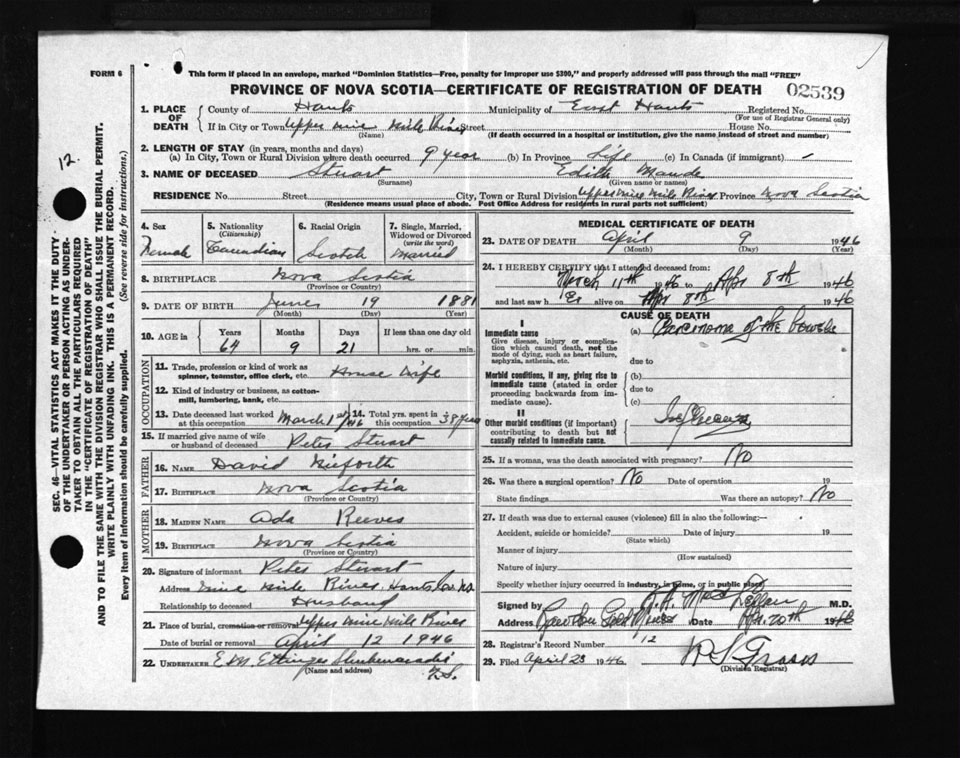 FORM 6
This form if placed in an envelope, marked "Dominion Statistics—Free, penalty for improper use $300," and properly addressed will pass through the mail "FREE"
PROVINCE OF NOVA SCOTIA—CERTIFICATE OF REGISTRATION OF DEATH
02539
12.
SEC. 46—VITAL STATISTICS ACT MAKES IT THE DUTY
OF THE UNDERTAKER OR PERSON ACTING AS UNDER-
TAKER TO OBTAIN ALL THE PARTICULARS REQUIRED
IN THE "CERTIFICATE OF REGISTRATION OF DEATH"
AND TO FILE THE SAME WITH THE DIVISION REGISTRAR WHO SHALL ISSUE THE BURIAL PERMIT.
WRITE PLAINLY WITH UNFADING INK. THIS IS A PERMANENT RECORD.
Every item of information should be carefully supplied. (See reverse side for instructions.)
1. PLACE OF DEATH County of Hants Municipality of East Hants Registered No.
(For use of Registrar General only)
If in City or Town Upper Nine Mile River Street House No.
(If death occurred in a hospital or institution, give the name instead of street and number)
2. LENGTH OF STAY (in years, months and days)
(a) In City, Town or Rural Division where death occurred 9 year (b) In Province Life (c) In Canada (if immigrant) –
3. NAME OF DECEASED Stuart Edith Maude
(Surname) (Given name or names)
RESIDENCE No. Street City, Town or Rural Division Upper Nine Mile River Province Nova Scotia
(Residence means usual place of abode. Post Office Address for residents in rural parts not sufficient)
4. Sex Female
5. Nationality (Citizenship) Canadian
6. Racial Origin Scotch
7. Single, Married, Widowed or Divorced (write the word) Married
8. BIRTHPLACE Nova Scotia
(Province or Country)
9. DATE OF BIRTH June 19 1881
(Month) (Day) (Year)
10. AGE in Years Months Days If less than one day old
64 9 21 hrs. or min.
OCCUPATION
11. Trade, profession or kind of work as spinner, teamster, office clerk, etc. House Wife
12. Kind of industry or business, as cotton-mill, lumbering, bank, etc.
13. Date deceased last worked at this occupation March 1st 1946
14. Total yrs. spent in this occupation 38 years
15. If married give name of wife or husband of deceased Peter Stuart
FATHER
16. NAME David
17. BIRTHPLACE Nova Scotia
(Province or Country)
MOTHER
18. MAIDEN NAME Ada Reeves
19. BIRTHPLACE Nova Scotia
(Province or Country)
20. Signature of informant Peter Stuart
Address Nine Mile River, Hants Co. N.S.
Relationship to deceased Husband
21. Place of burial, cremation or removal Upper Nine Mile River
Date of burial or removal April 12 1946
22. UNDERTAKER E M Ettinger Shubenacadie
N.S.
(Name and address)
MEDICAL CERTIFICATE OF DEATH
23. DATE OF DEATH April 9 1946
(Month) (Day) (Year)
24. I HEREBY CERTIFY that I attended deceased from:
March 11th 1946 to Apr 8th 1946
and last saw her alive on Apr 8th 1946
CAUSE OF DEATH
I
Immediate cause (a) Carcinoma of the bowels
Give disease, injury or complication which caused death, not the mode of dying, such as heart failure, asphyxia, asthenia, etc.
due to
Morbid conditions, if any, giving rise to immediate cause (stated in order proceeding backwards from immediate cause).
(b)
due to
(c)
II
Other morbid conditions (if important) contributing to death but not causally related to immediate cause.
25. If a woman, was the death associated with pregnancy? No
26. Was there a surgical operation? No Date of operation 19
State findings Was there an autopsy? No
27. If death was due to external causes (violence) fill in also the following:—
Accident, suicide or homicide? Date of injury 19
(State which)
Manner of injury
(How sustained)
Nature of injury
Specify whether injury occurred in industry, in home, or in public place
Signed by M.D.
Address Rawdon Gold Mines Date Apr. 20th 1946
28. Registrar's Record Number 12
29. Filed April 23 1946
(Division Registrar)